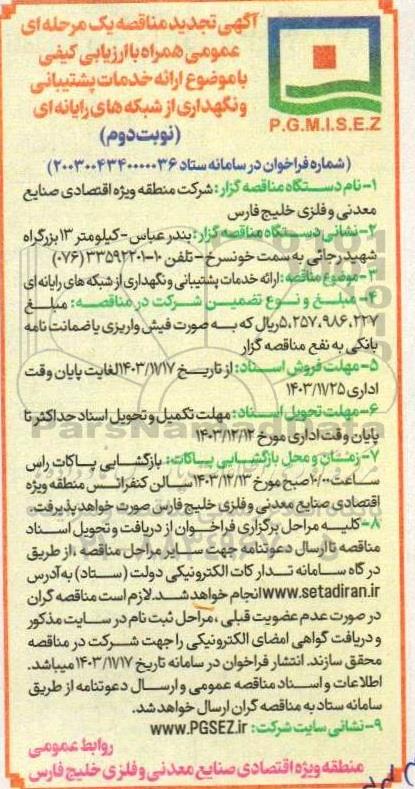 آگهی تجدید مناقصه یک مرحله ای
عمومی همراه با ارزیابی کیفی
با موضوع ارائه خدمات پشتیبانی
و نگهداری از شبکه های رایانه ای
(نوبت دوم)
P.G.M.I.S.E.Z
(شماره فراخوان در سامانه ستاد ۲۰۰۳۰۰۴۳۴۰۰۰۰۰۳۶)
۱- نام دستگاه مناقصه گزار: شرکت منطقه ویژه اقتصادی صنایع
معدنی و فلزی خلیج فارس
۲- نشانی دستگاه مناقصه گزار: بندرعباس - کیلومتر ۱۳ بزرگراه
شهید رجائی به سمت خونسرخ - تلفن ۱۰-۳۳۵۹۲۲۰۱ (۰۷۶)
۳- موضوع مناقصه: ارائه خدمات پشتیبانی و نگهداری از شبکه های رایانه ای
۴- مبلغ و نوع تضمین شرکت در مناقصه: مبلغ
۵،۲۵۷،۹۸۶،۲۲۷ ریال که به صورت فیش واریزی یا ضمانت نامه
بانکی به نفع مناقصه گزار
۵- مهلت فروش اسناد: از تاریخ ۱۴۰۳/۱۱/۱۷ لغایت پایان وقت
اداری ۱۴۰۳/۱۱/۲۵
۶- مهلت تحویل اسناد: مهلت تکمیل و تحویل اسناد حداکثر تا
پایان وقت اداری مورخ ۱۴۰۳/۱۲/۱۲
۷- زمان و محل بازگشایی پاکات: بازگشایی پاکات راس
ساعت ۱۰/۰۰ صبح مورخ ۱۴۰۳/۱۲/۱۳ سالن کنفرانس منطقه ویژه
اقتصادی صنایع معدنی و فلزی خلیج فارس صورت خواهد پذیرفت.
۸- کلیه مراحل برگزاری فراخوان از دریافت و تحویل اسناد
مناقصه تا ارسال دعوتنامه جهت سایر مراحل مناقصه، از طریق
درگاه سامانه تدارکات الکترونیکی دولت (ستاد) به آدرس
www.setadiran.ir انجام خواهد شد. لازم است مناقصه گران
در صورت عدم عضویت قبلی، مراحل ثبت نام در سایت مذکور
و دریافت گواهی امضای الکترونیکی را جهت شرکت در مناقصه
محقق سازند. انتشار فراخوان در سامانه تاریخ ۱۴۰۳/۱۱/۱۷ میباشد.
اطلاعات و اسناد مناقصه عمومی و ارسال دعوتنامه از طریق
سامانه ستاد به مناقصه گران ارسال خواهد شد.
۹- نشانی سایت شرکت: www.PGSEZ.ir
روابط عمومی
منطقه ویژه اقتصادی صنایع معدنی و فلزی خلیج فارس